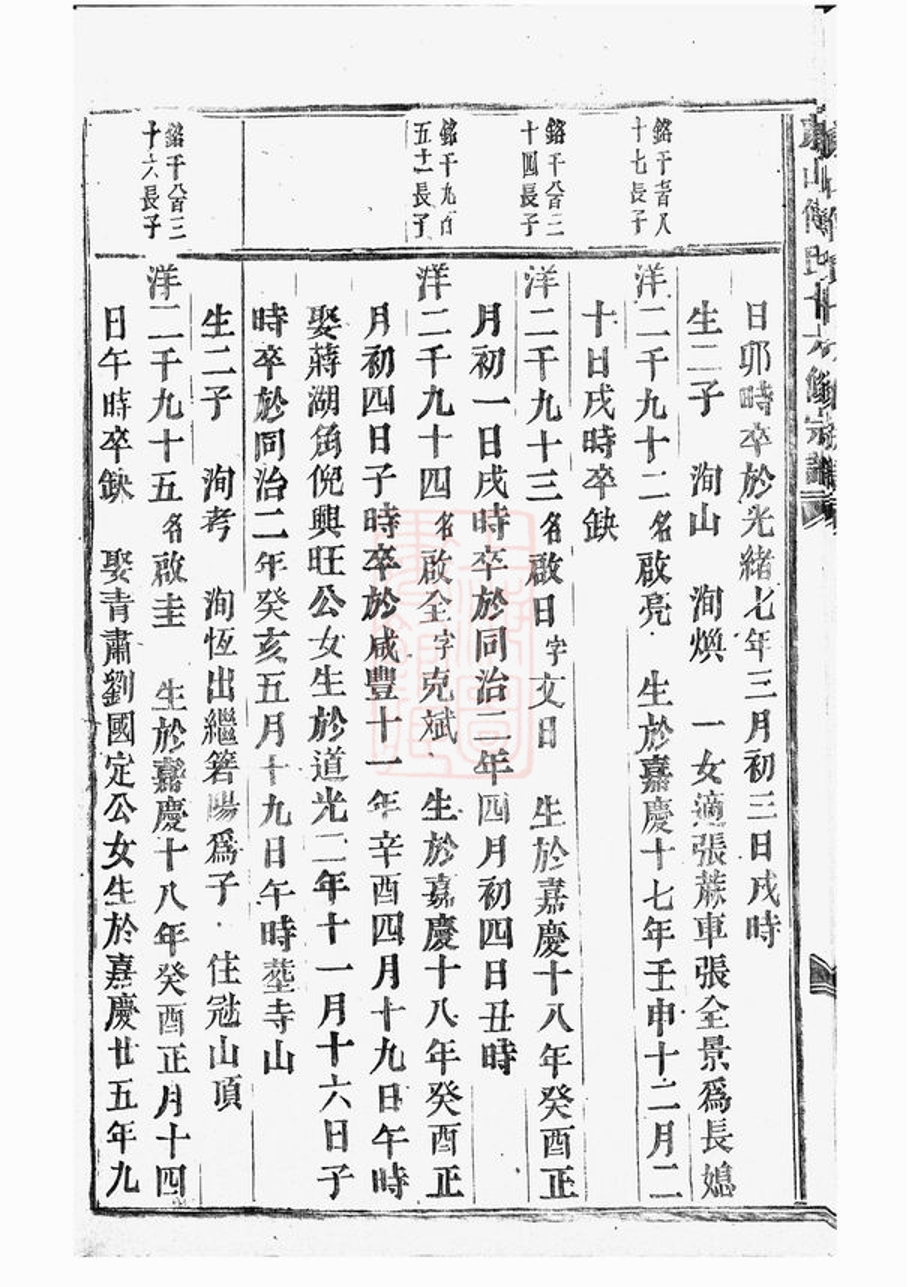 山傅氏十六修宗譜
日卯時卒於光緒七年三月初三日戌時
生二子 洵山 洵煥 一女適張蔴車張全景爲長媳
銘千
十七長子
洋二千九十二名啟亮 生於嘉慶十七年壬申十二月二
十日戌時卒缺
銘千八百三
十四長子
洋二千九十三名啟日字文日 生於嘉慶十八年癸酉正
月初一日戌時卒於同治二年四月初四日丑時
銘千九百
五十一長子
洋二千九十四名啟全字克斌 生於嘉慶十八年癸酉正
月初四日子時卒於咸豐十一年辛酉四月十九日午時
娶蔣湖角倪興旺公女生於道光二年十一月十六日子
時卒於同治二年癸亥五月十九日午時塟寺山
生二子 洵考 洵恆出繼箬陽爲子 住冠山頂
銘千八百三
十六長子
洋二千九十五名啟圭 生於嘉慶十八年癸酉正月十四
日午時卒缺 娶青肅劉國定公女生於嘉慶廿五年九